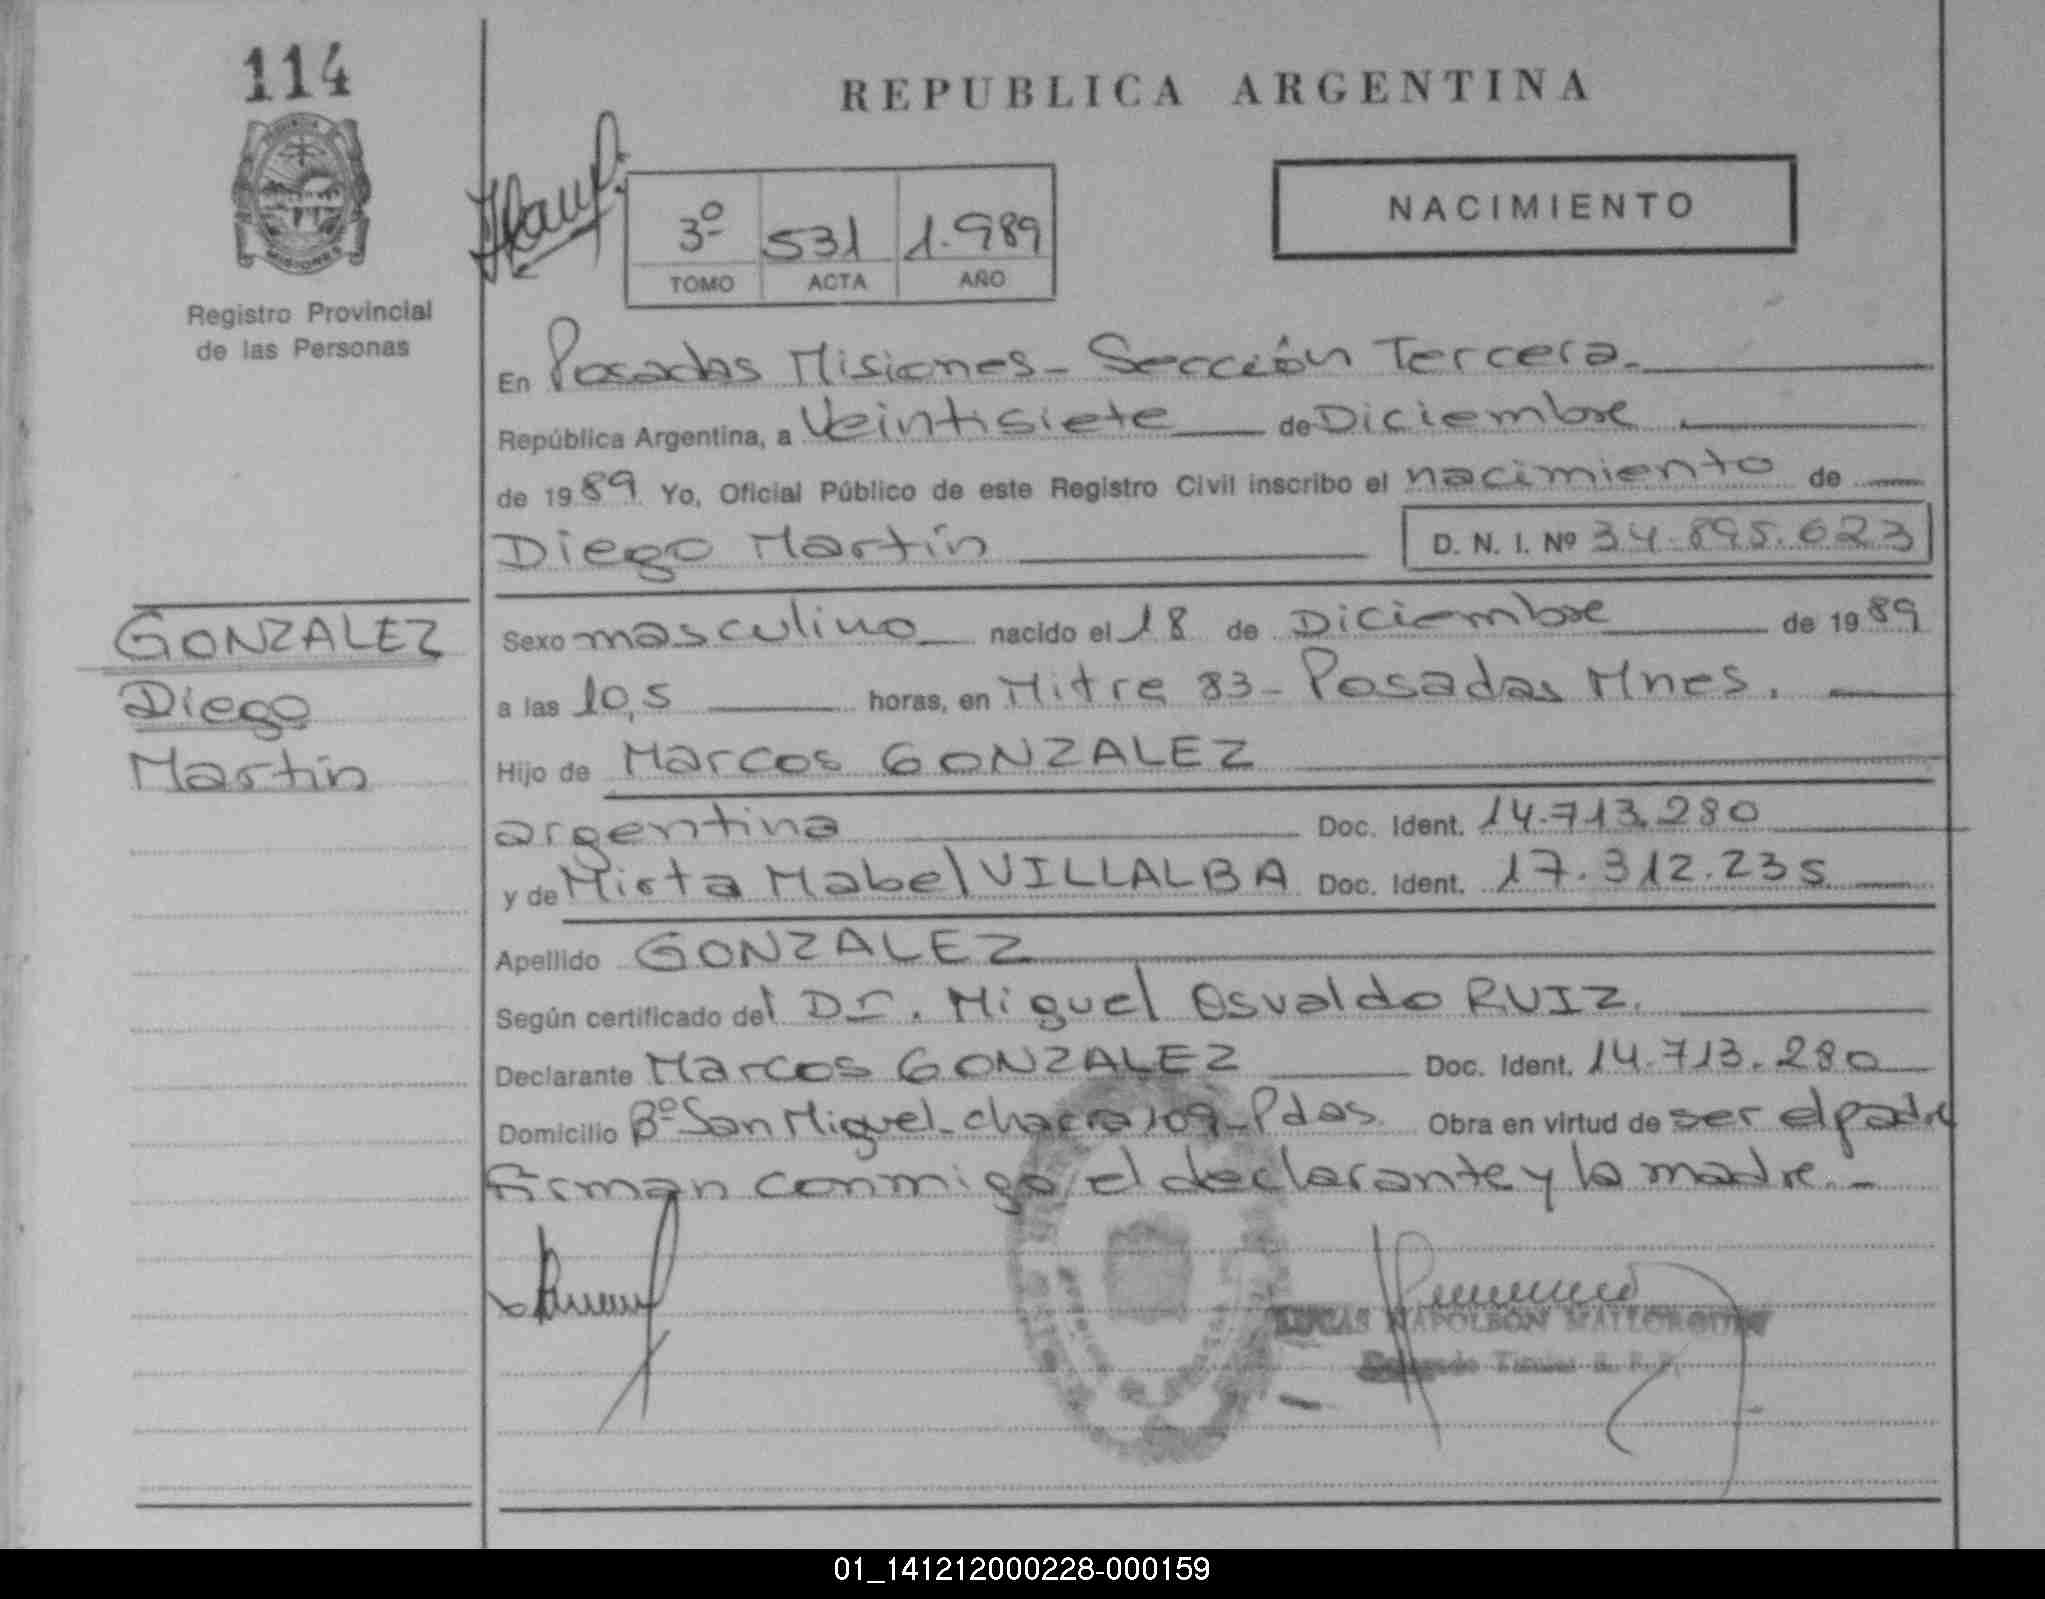 114
REPUBLICA ARGENTINA
NACIMIENTO
3º 531 1.989
TOMO ACTA AÑO
Registro Provincial
de las Personas
En Posadas Misiones - Sección Tercera.
República Argentina, a Veintisiete de Diciembre
de 1989 Yo, Oficial Público de este Registro Civil inscribo el nacimiento de
Diego Martín D. N. I. Nº 34.895.623
GONZALEZ
Diego
Martín
Sexo masculino nacido el 18 de Diciembre de 1989
a las 10,5 horas, en Mitre 83 - Posadas Mnes.
Hijo de Marcos GONZALEZ
argentina Doc. Ident. 14.713.280
y de Mirta Mabel VILLALBA Doc. Ident. 17.312.235
Apellido GONZALEZ
Según certificado del Dr. Miguel Osvaldo RUIZ.
Declarante Marcos GONZALEZ Doc. Ident. 14.713.280
Domicilio Bº San Miguel - chacra 109 - Pdas. Obra en virtud de ser el padre
firman conmigo el declarante y la madre. -
LUCAS NAPOLEON MALLORQUIN
Titular R. P. P.
01_141212000228-000159